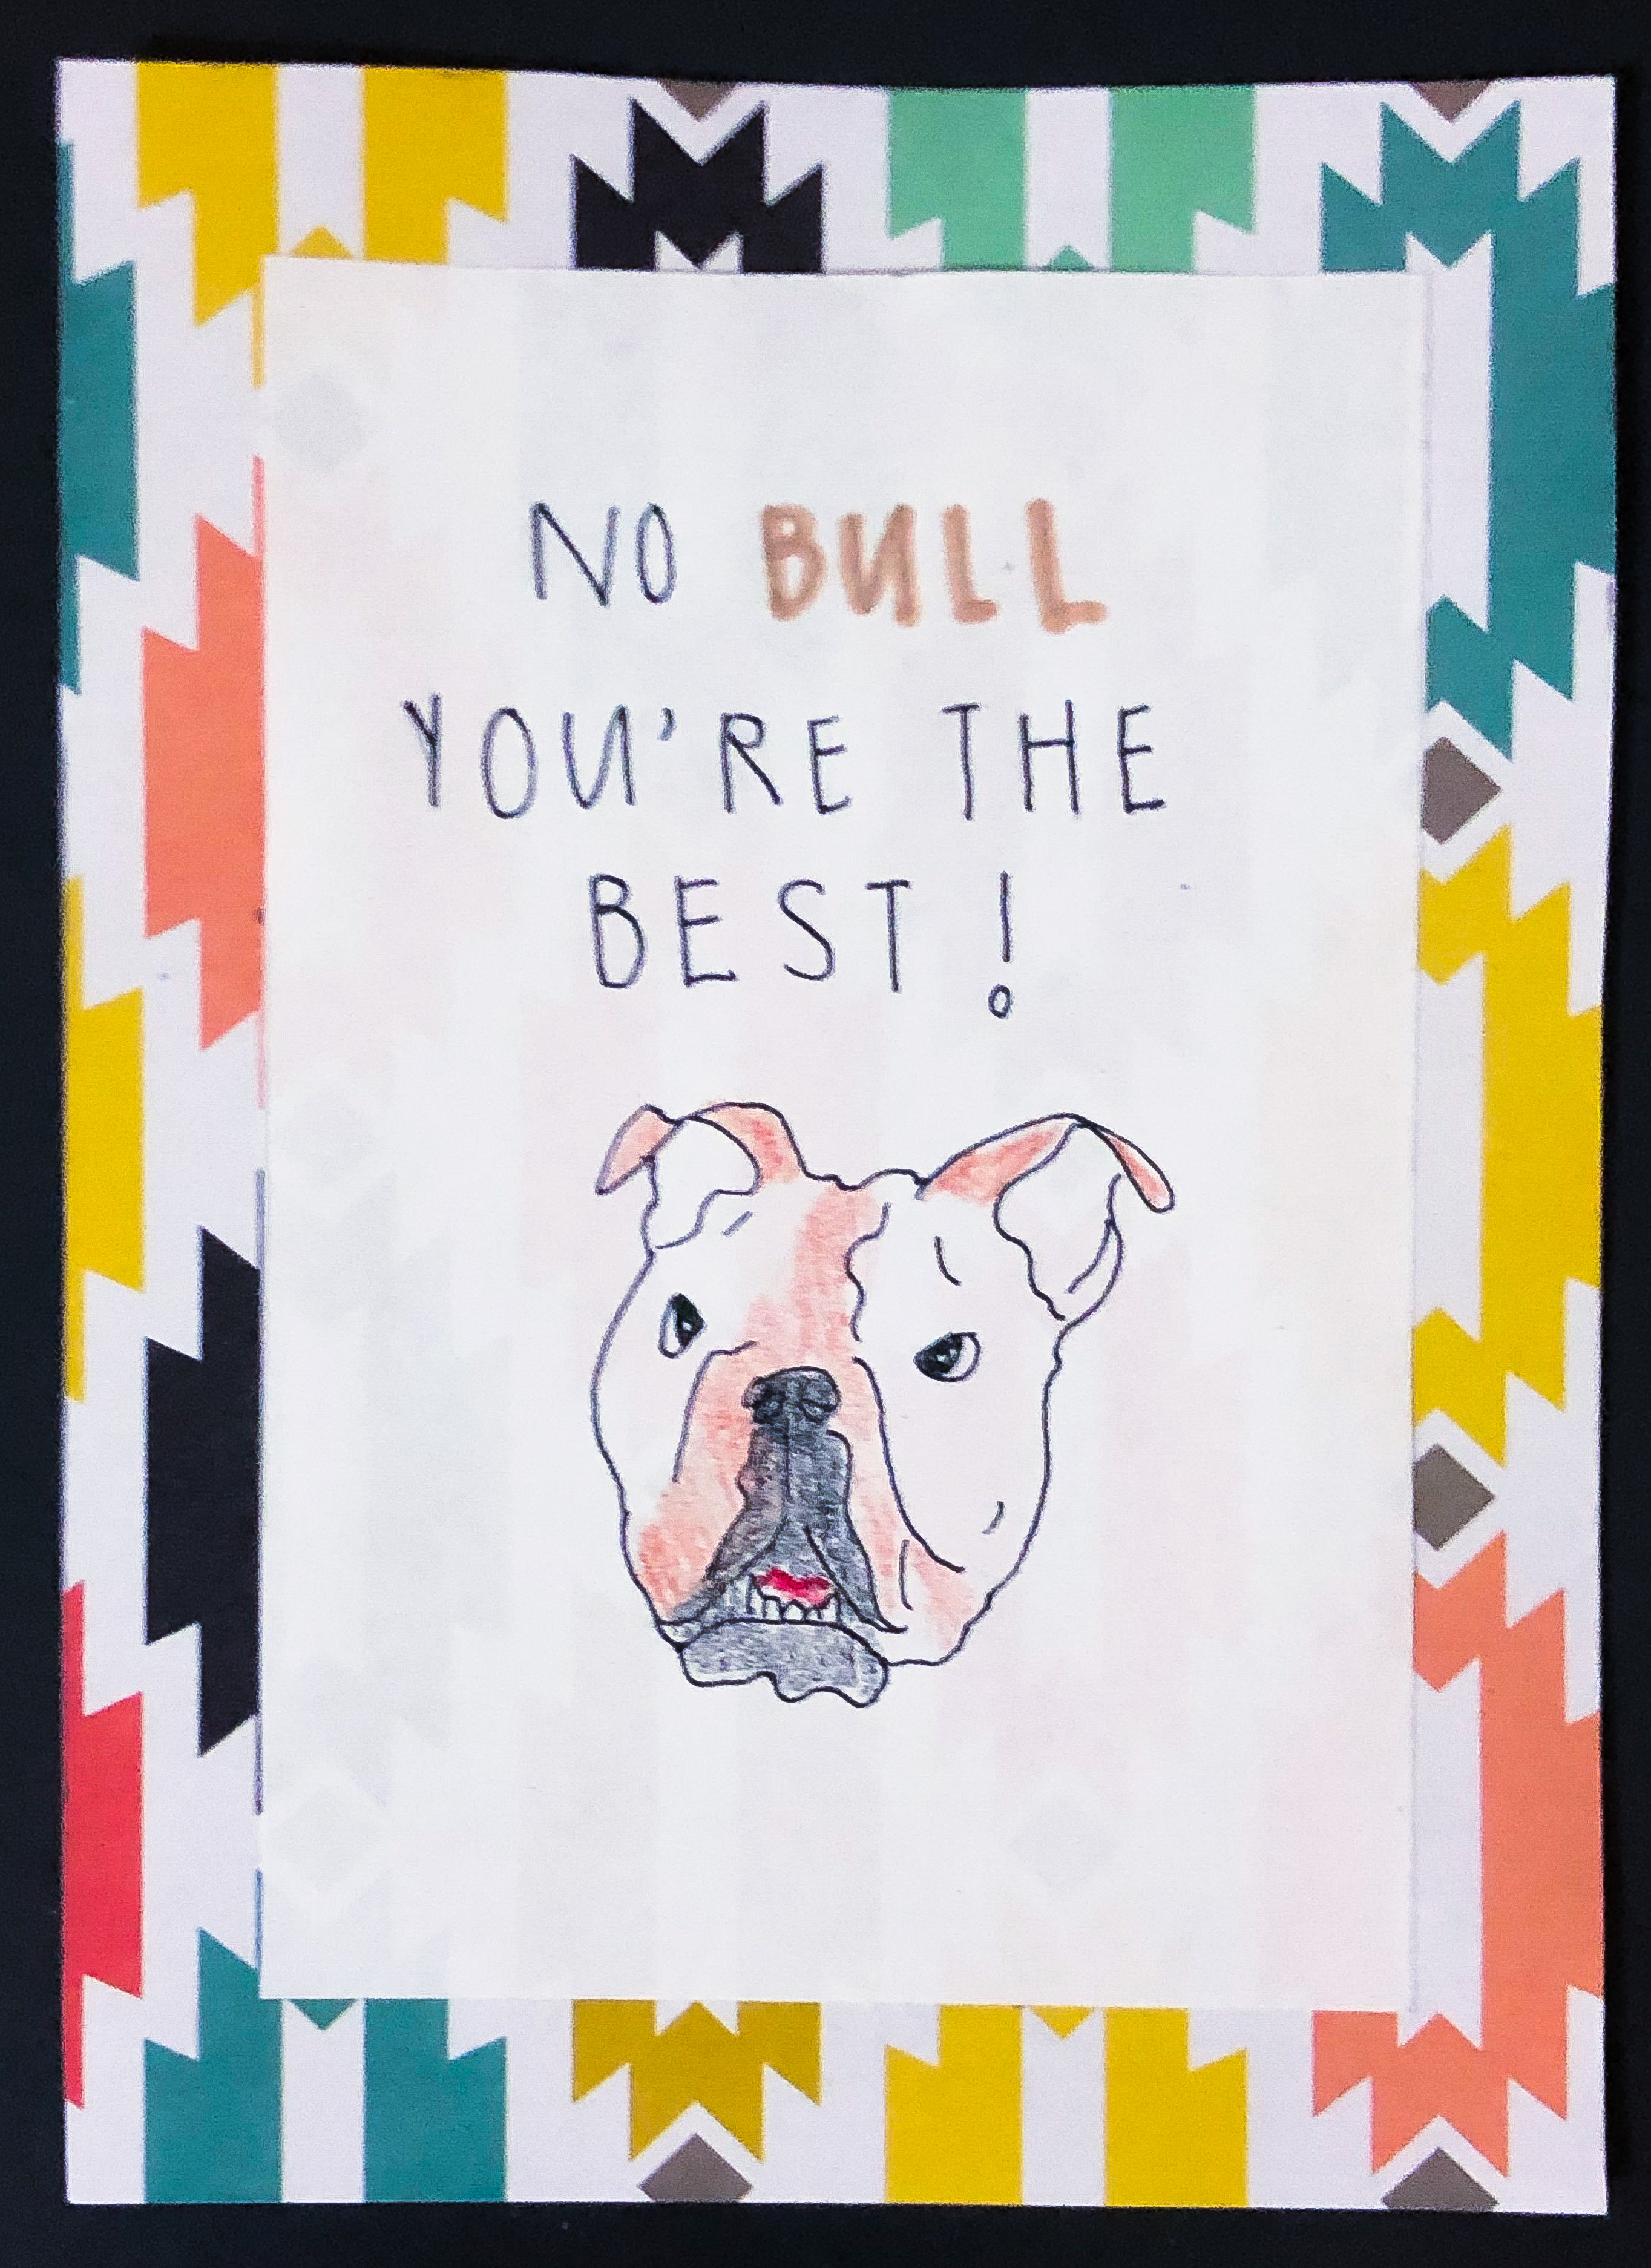 NO BULL
YOU'RE THE
BEST!